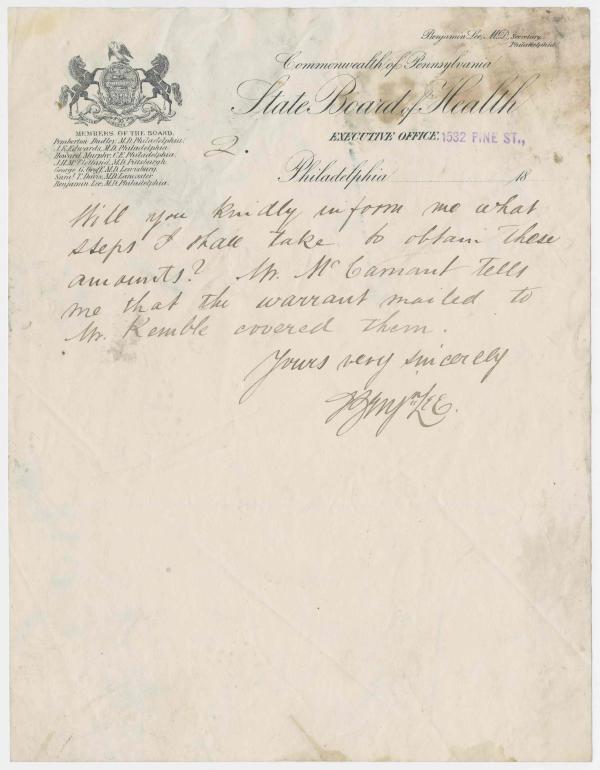 Benjamin Lee, M.D., Secretary,
Philadelphia.
Commonwealth of Pennsylvania
State Board of Health
EXECUTIVE OFFICE 1532 PINE ST.,
MEMBERS OF THE BOARD.
Pemberton Dudley, M.D. Philadelphia.
J.F. Edwards, M.D. Philadelphia.
Howard Murphy, C.E. Philadelphia.
J.H. McClelland, M.D. Pittsburgh.
George G. Groff, M.D. Lewisburg.
Saml. T. Davis, M.D. Lancaster
Benjamin Lee, M.D. Philadelphia.
2.
Philadelphia 18
Will you kindly inform me what
steps I shall take to obtain these
amounts? Mr. McCamant tells
me that the warrant mailed to
Mr. Kemble covered them.
Yours very sincerely
Benjn Lee.